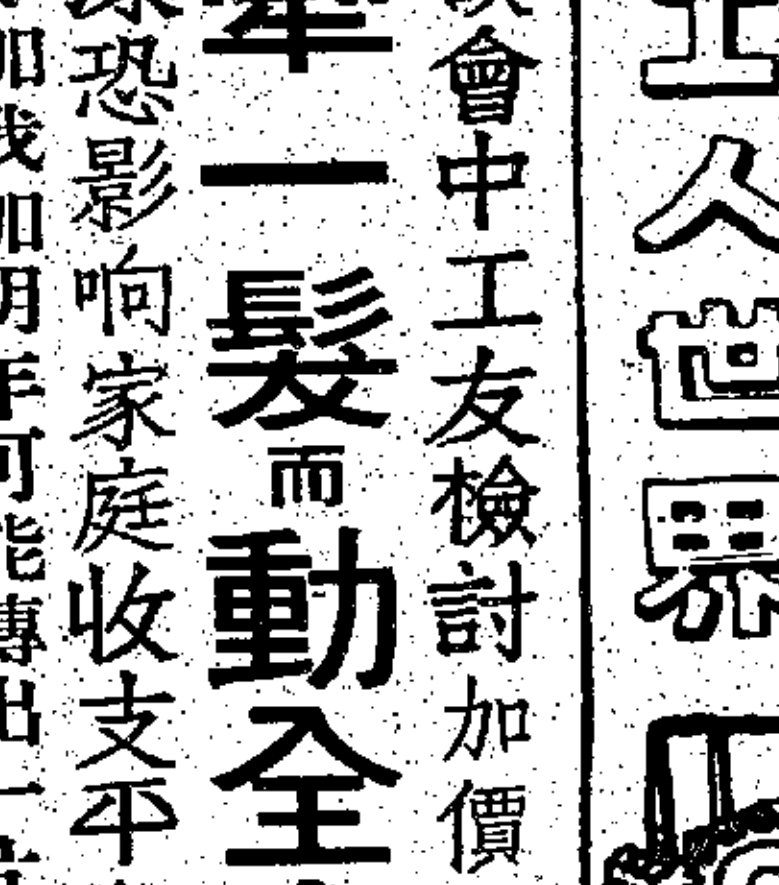 工人世界
會中工友檢討加價
牽一髮而動全
恐影响家庭收支平
加我加明年可能傳出一